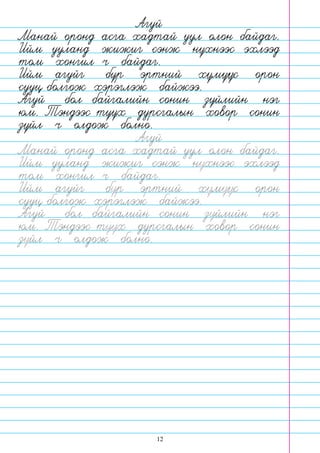 Агуй
Манай оронд асга хадтай уул олон байдаг.
Ийм ууланд жижиг сэнж нүхнээс эхлээд
том хонгил ч байдаг.
Ийм агуйг бүр эртний хүмүүс орон
сууц болгож хэрэглэж байжээ.
Агуй бол байгалийн сонин зүйлийн нэг
юм. Тэндээс түүх дурсгалын ховор сонин
зүйл ч олдож болно.
Агуй
Манай оронд асга хадтай уул олон байдаг.
Ийм ууланд жижиг сэнж нүхнээс эхлээд
том хонгил ч байдаг.
Ийм агуйг бүр эртний хүмүүс орон
сууц болгож хэрэглэж байжээ.
Агуй бол байгалийн сонин зүйлийн нэг
юм. Тэндээс түүх дурсгалын ховор сонин
зүйл ч олдож болно.
12